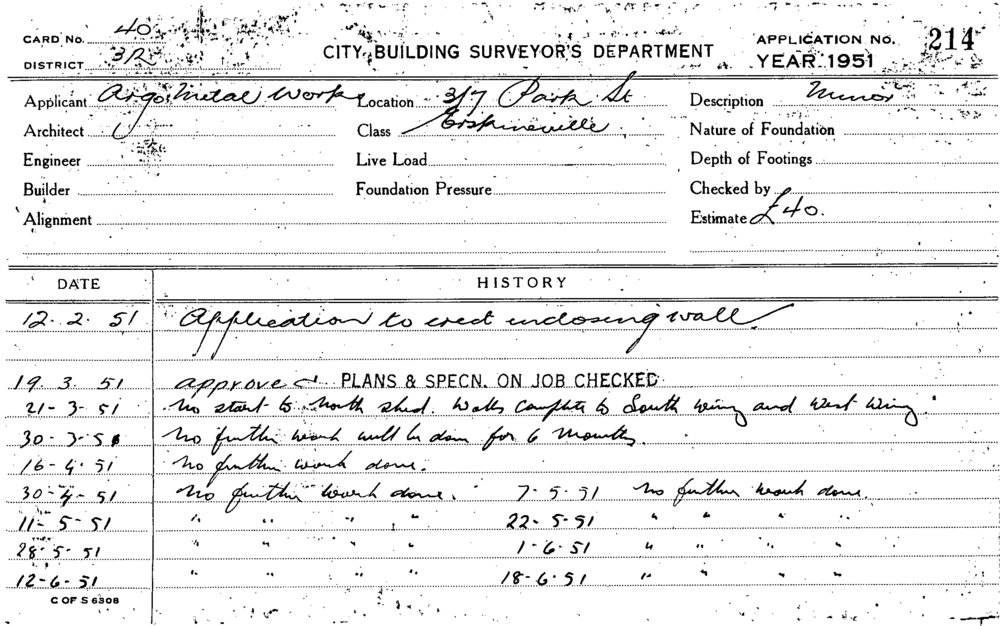 CARD No. 40
DISTRICT 312
CITY BUILDING SURVEYOR'S DEPARTMENT
APPLICATION No. 214
YEAR 1951
Applicant Argo Metal Works Location 3/7 Park St Description Minor
Architect Class Erskineville Nature of Foundation
Engineer Live Load Depth of Footings
Builder Foundation Pressure Checked by
Alignment Estimate £40.
DATE HISTORY
12. 2. 51 Application to erect inclosing wall
19. 3. 51 approved PLANS & SPECN. ON JOB CHECKED
21-3-51 No start to North shed. Walls Complete to South Wing and West Wing.
30-3-51 No further work will be done for 6 Months.
16-4-51 No further work done.
30-4-51 No further work done. 7-5-51 No further work done.
11-5-51 " " " " 22-5-51 " " " "
28-5-51 " " " " 1-6-51 " " " "
12-6-51 " " " " 18-6-51 " " " "
C OF S 6308